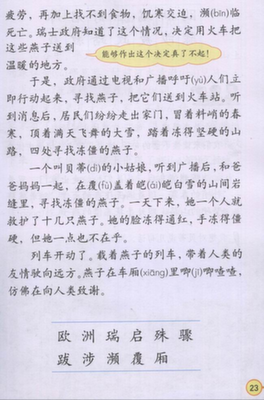 疲劳，再加上找不到食物，饥寒交迫，濒(bīn)临
死亡。瑞士政府知道了这个情况，决定用火车把
这些燕子送到
能够作出这个决定真了不起！
温暖的地方。
于是，政府通过电视和广播呼吁(yù)人们立
即行动起来，寻找燕子，把它们送到火车站。听
到消息后，居民们纷纷走出家门，冒着料峭的春
寒，顶着满天飞舞的大雪，踏着冻得坚硬的山
路，四处寻找冻僵的燕子。
一个叫贝蒂(dì)的小姑娘，听到广播后，和爸
爸妈妈一起，在覆(fù)盖着皑(ái)皑白雪的山间岩
缝里，寻找冻僵的燕子。一天下来，她一个人就
救护了十几只燕子。她的脸冻得通红，手冻得僵
硬，但她一点也不在乎。
列车开动了。载着燕子的列车，带着人类的
友情驶向远方。燕子在车厢(xiāng)里唧(jī)唧喳喳，
仿佛在向人类致谢。
欧 洲 瑞 启 殊 骤
跋 涉 濒 覆 厢
23